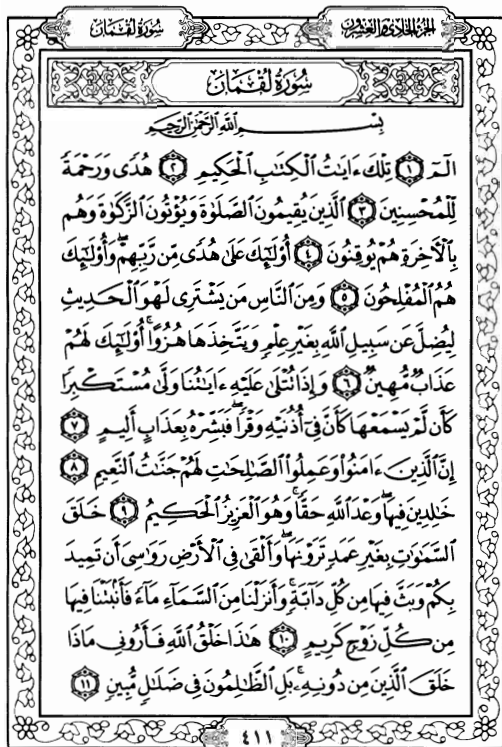 الجزء الحادي والعشرون
سورة لقمان
سورة لقمان
بِسْمِ اللَّهِ الرَّحْمَٰنِ الرَّحِيمِ
الٓمٓ ١ تِلْكَ ءَايَٰتُ الْكِتَٰبِ الْحَكِيمِ ٢ هُدًى وَرَحْمَةً
لِّلْمُحْسِنِينَ ٣ الَّذِينَ يُقِيمُونَ الصَّلَوٰةَ وَيُؤْتُونَ الزَّكَوٰةَ وَهُم
بِالْءَاخِرَةِ هُمْ يُوقِنُونَ ٤ أُوْلَٰٓئِكَ عَلَىٰ هُدًى مِّن رَّبِّهِمْ ۖ وَأُوْلَٰٓئِكَ
هُمُ الْمُفْلِحُونَ ٥ وَمِنَ النَّاسِ مَن يَشْتَرِى لَهْوَ الْحَدِيثِ
لِيُضِلَّ عَن سَبِيلِ اللَّهِ بِغَيْرِ عِلْمٍ وَيَتَّخِذَهَا هُزُوًا ۚ أُوْلَٰٓئِكَ لَهُمْ
عَذَابٌ مُّهِينٌ ٦ وَإِذَا تُتْلَىٰ عَلَيْهِ ءَايَٰتُنَا وَلَّىٰ مُسْتَكْبِرًا
كَأَن لَّمْ يَسْمَعْهَا كَأَنَّ فِىٓ أُذُنَيْهِ وَقْرًا ۖ فَبَشِّرْهُ بِعَذَابٍ أَلِيمٍ ٧
إِنَّ الَّذِينَ ءَامَنُوا۟ وَعَمِلُوا۟ الصَّٰلِحَٰتِ لَهُمْ جَنَّٰتُ النَّعِيمِ ٨
خَٰلِدِينَ فِيهَا ۖ وَعْدَ اللَّهِ حَقًّا ۚ وَهُوَ الْعَزِيزُ الْحَكِيمُ ٩ خَلَقَ
السَّمَٰوَٰتِ بِغَيْرِ عَمَدٍ تَرَوْنَهَا ۖ وَأَلْقَىٰ فِى الْأَرْضِ رَوَٰسِىَ أَن تَمِيدَ
بِكُمْ وَبَثَّ فِيهَا مِن كُلِّ دَآبَّةٍ ۚ وَأَنزَلْنَا مِنَ السَّمَآءِ مَآءً فَأَنۢبَتْنَا فِيهَا
مِن كُلِّ زَوْجٍ كَرِيمٍ ١٠ هَٰذَا خَلْقُ اللَّهِ فَأَرُونِى مَاذَا
خَلَقَ الَّذِينَ مِن دُونِهِۦ ۚ بَلِ الظَّٰلِمُونَ فِى ضَلَٰلٍ مُّبِينٍ ١١
٤١١